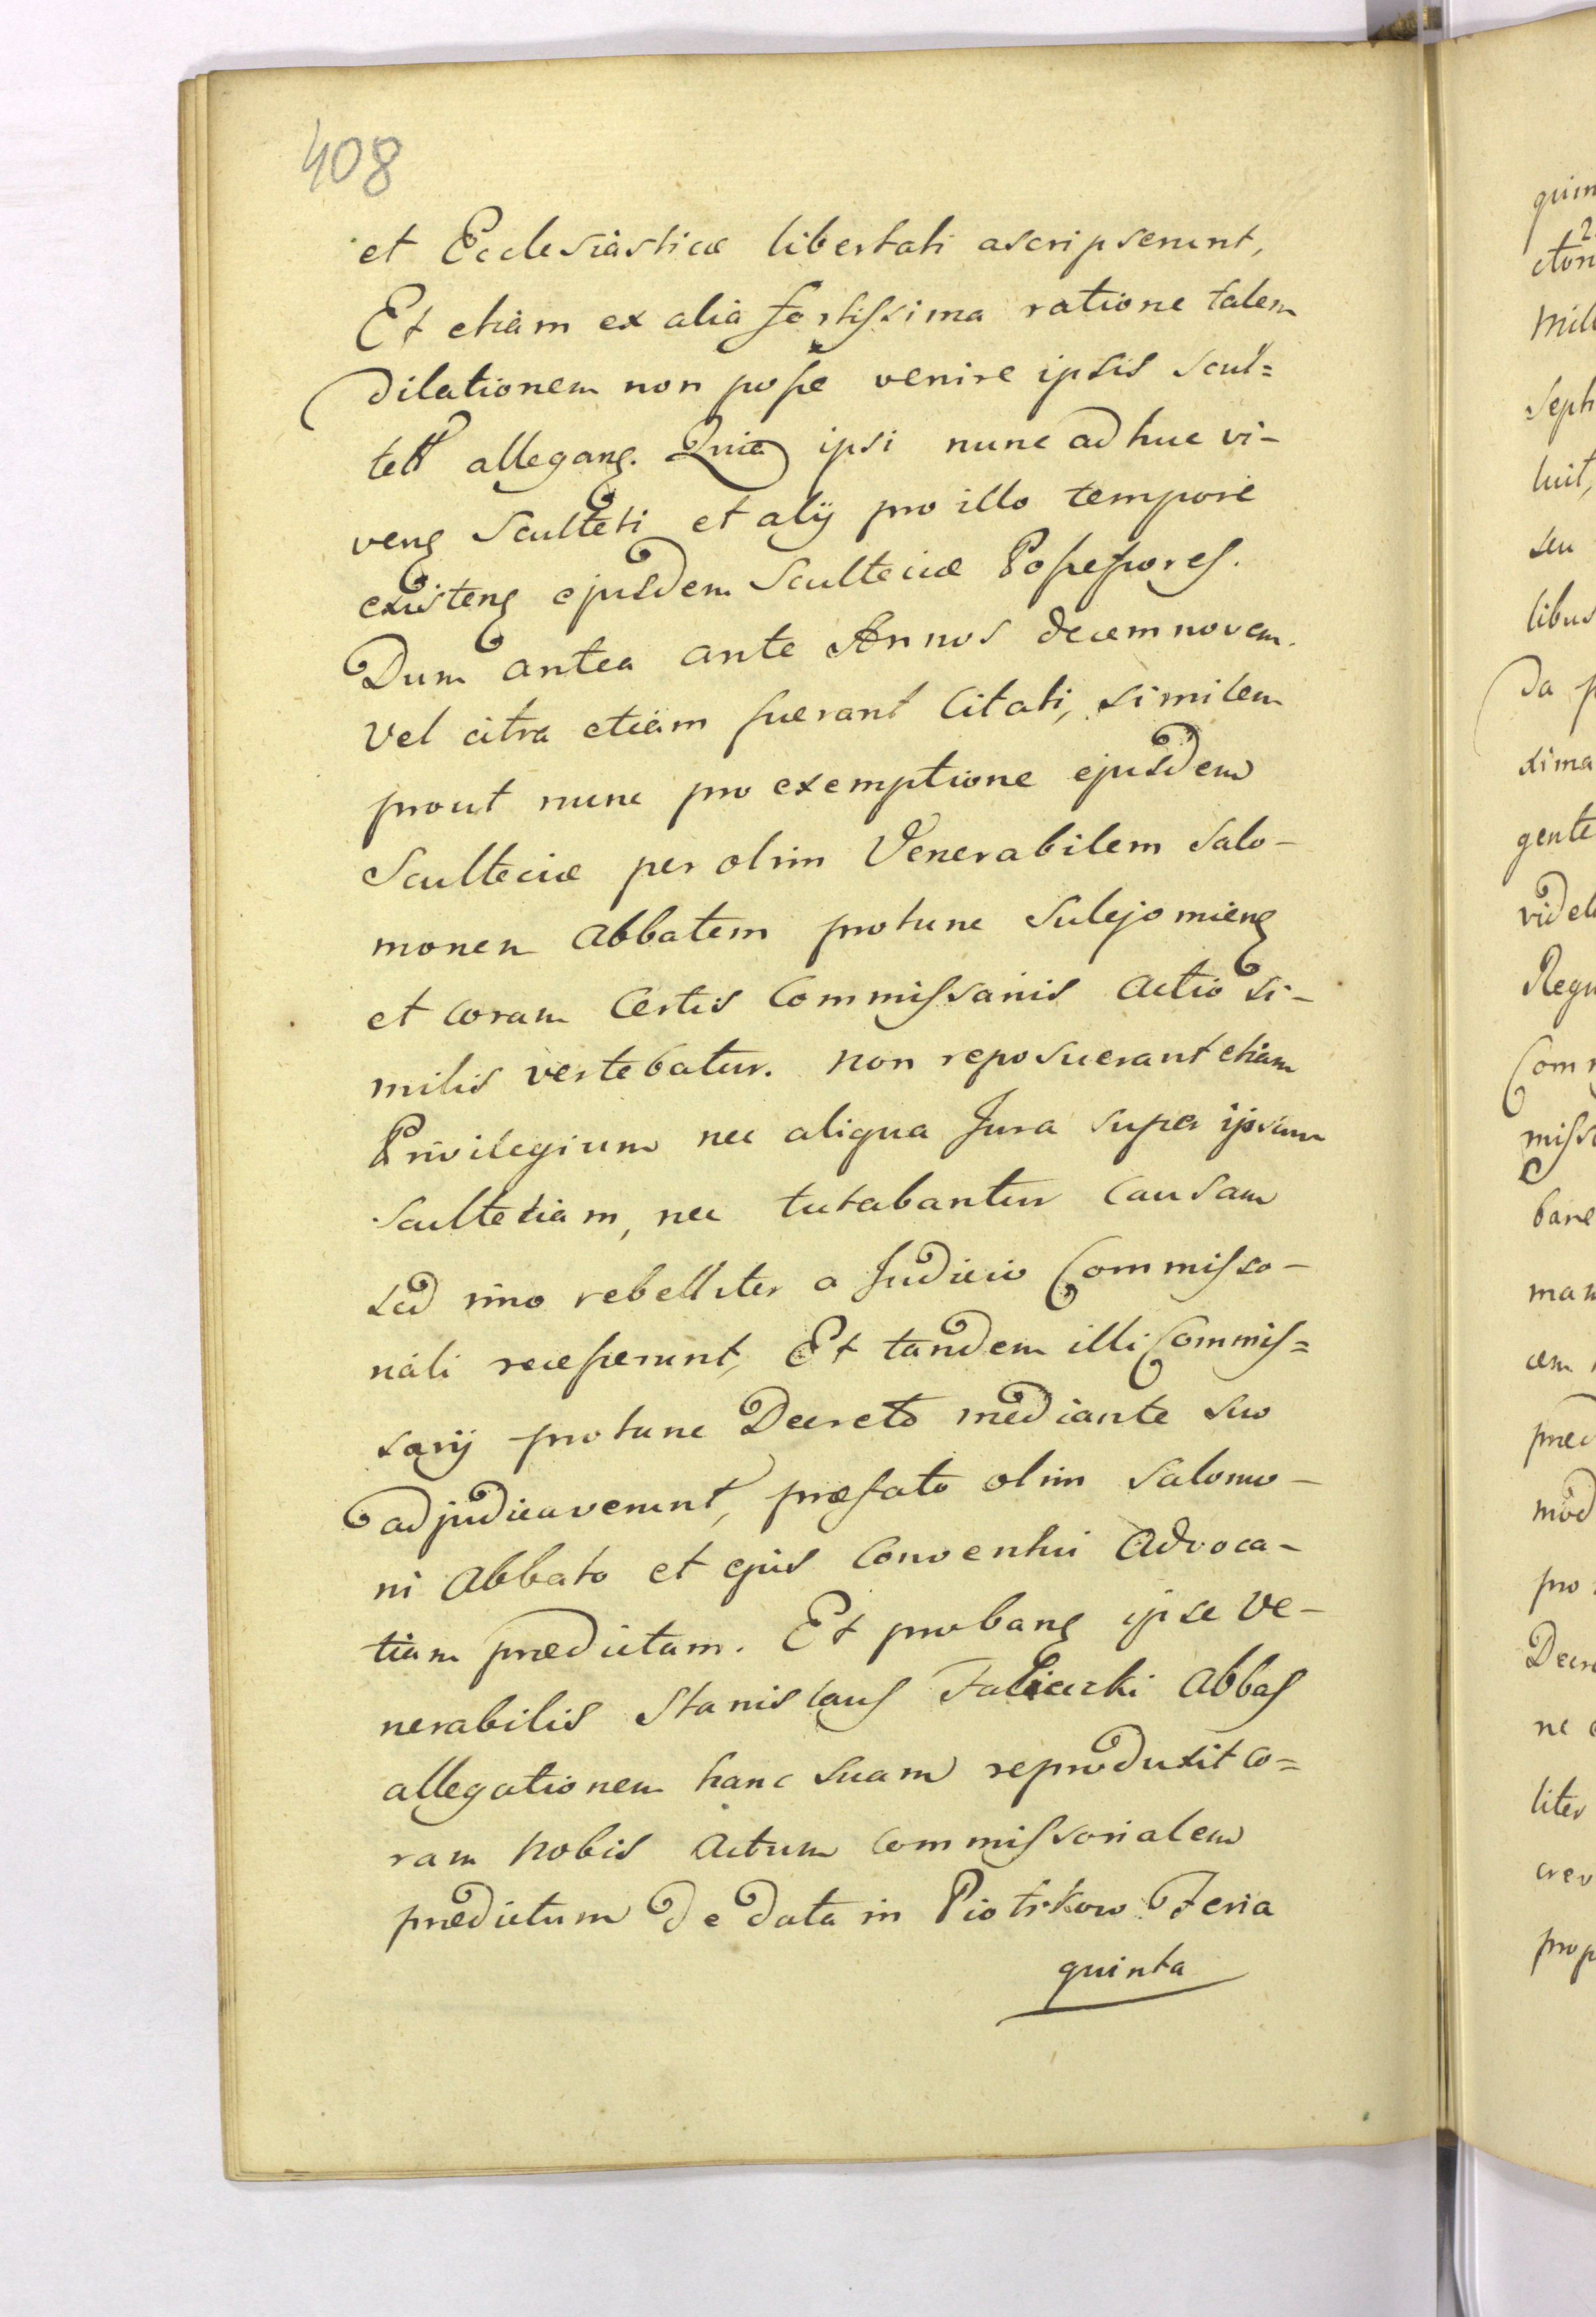 408
et Ecclesiasticæ libertati ascripserunt,
Et etiam ex alia fortissima ratione talem
dilationem non posse venire ipsis Scul=
tet allegang. Quia ipsi nunc ad huc vi-
veng Sculteti et alÿ pro illo tempore
existeng ejusdem Scultecice Possessores.
Dum antea ante Annos decem novem.
vel citra etiam fuerant Citati, similem
prout nunc pro exemptione ejusdem
Sculteciæ per olim Venerabilem Salo-
monem Abbatem protunc Sulejomieng
et coram Certis Commissariis Actio si-
milis vertebatur. non reposuerant etiam
Privilegium nec aliqua Jura super ipsam
Scultetiam, nec tutabantur Causam
sed imo rebelliter a Judicio Commisso-
riali recesserunt, Et tandem illi Commis=
sarÿ protunc Decreto mediante suo
adjudicaverunt, præfato olim Salomo-
ni Abbato et ejus Conventui Advoca-
tiam prædictam. Et probang ipse Ve-
nerabilis Stanislaus Falicucki Abbas
allegationem hanc suam reproduxit co=
ram nobis Actum Commissorialem
prædictum de data in Piotrkow Feria
quinta